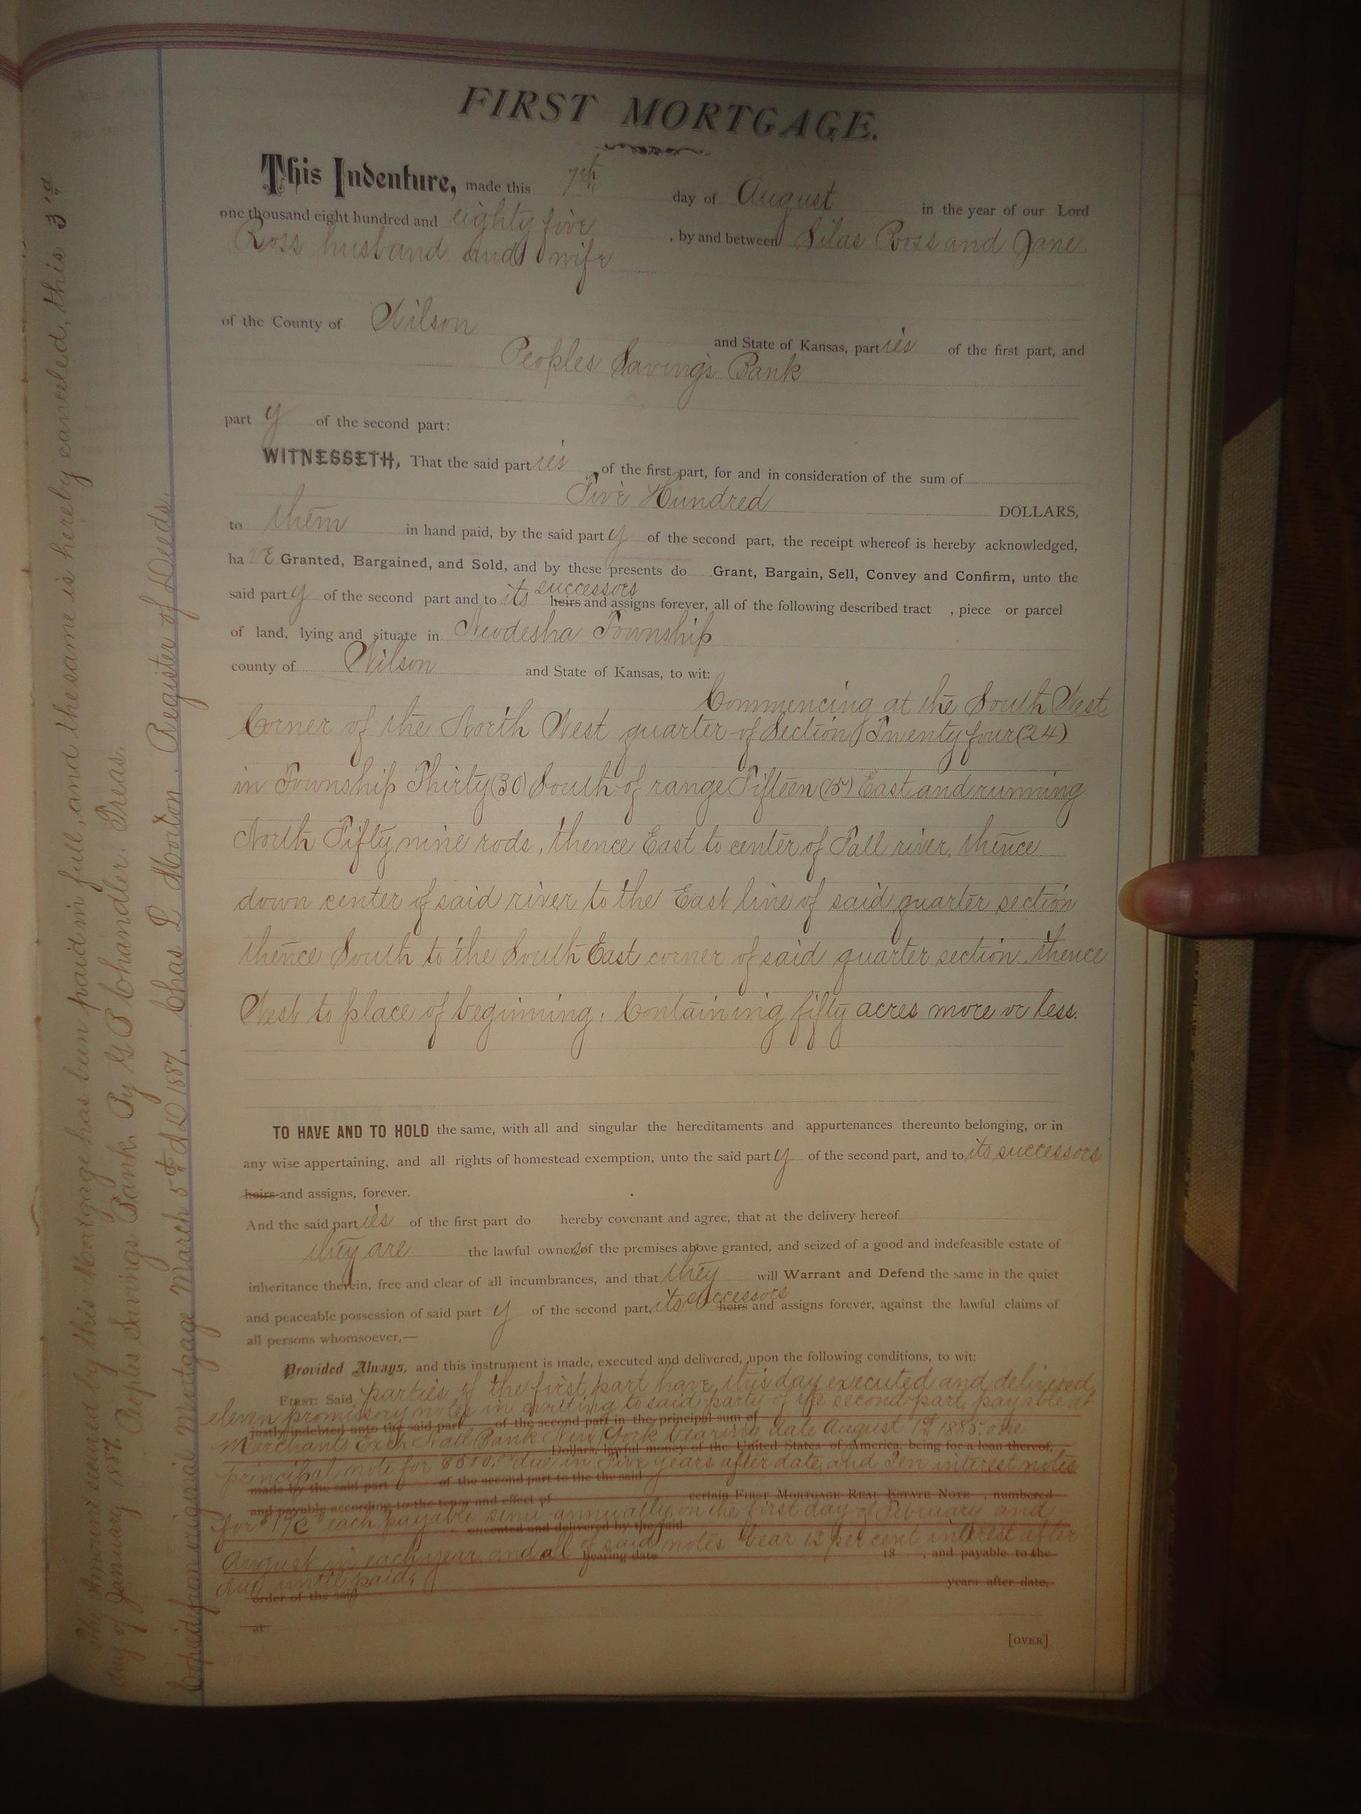 FIRST MORTGAGE.
This Indenture, made this 7th day of August in the year of our Lord
one thousand eight hundred and eighty five , by and between Silas Ross and Jane
Ross husband and wife
of the County of Wilson and State of Kansas, parties of the first part, and
Peoples Savings Bank
part y of the second part:
WITNESSETH, That the said parties of the first part, for and in consideration of the sum of
Five Hundred DOLLARS,
to them in hand paid, by the said party of the second part, the receipt whereof is hereby acknowledged,
have Granted, Bargained, and Sold, and by these presents do Grant, Bargain, Sell, Convey and Confirm, unto the
said party of the second part and to its successors heirs and assigns forever, all of the following described tract , piece or parcel
of land, lying and situate in Neodesha Township
county of Wilson and State of Kansas, to wit:
Commencing at the South West
Corner of the North West quarter of Section Twenty four (24)
in Township Thirty (30) South of range Fifteen (15) East and running
North Fifty nine rods, thence East to center of Fall river, thence
down center of said river to the East line of said quarter section
thence South to the South East corner of said quarter section, thence
West to place of beginning. Containing fifty acres more or less.
TO HAVE AND TO HOLD the same, with all and singular the hereditaments and appurtenances thereunto belonging, or in
any wise appertaining, and all rights of homestead exemption, unto the said party of the second part, and to its successors
heirs and assigns, forever.
And the said parties of the first part do hereby covenant and agree, that at the delivery hereof
they are the lawful owners of the premises above granted, and seized of a good and indefeasible estate of
inheritance therein, free and clear of all incumbrances, and that they will Warrant and Defend the same in the quiet
and peaceable possession of said party of the second part, its successors heirs and assigns forever, against the lawful claims of
all persons whomsoever,—
Provided Always, and this instrument is made, executed and delivered, upon the following conditions, to wit:
FIRST: Said parties of the first part have this day executed and delivered
eleven promissory notes in writing to said party of the second part, payable at
justly indebted unto the said part of the second part in the principal sum of
Merchants Exch. Natl Bank New York bearing date August 1885: one
Dollars, lawful money of the United States of America, being for a loan thereof,
principal note for due in Five years after date, and Ten interest notes
made by the said part of the second part to the said
and payable according to the tenor and effect of certain FIRST MORTGAGE REAL ESTATE NOTE , numbered
for each payable semi annually on the first day of February and
executed and delivered by the said
August in each year and all of said notes bear 12 per cent interest after
bearing date 18 , and payable to the
due until paid.
order of the said years after date,
at
[OVER]
The Amount secured by this Mortgage has been paid in full, and the same is hereby canceled, this 3rd
day of January 1887. Peoples Savings Bank. By G B Chandler. Treas.
Copied from original Mortgage March 5th A D 1887. Chas D Horton. Register of Deeds.